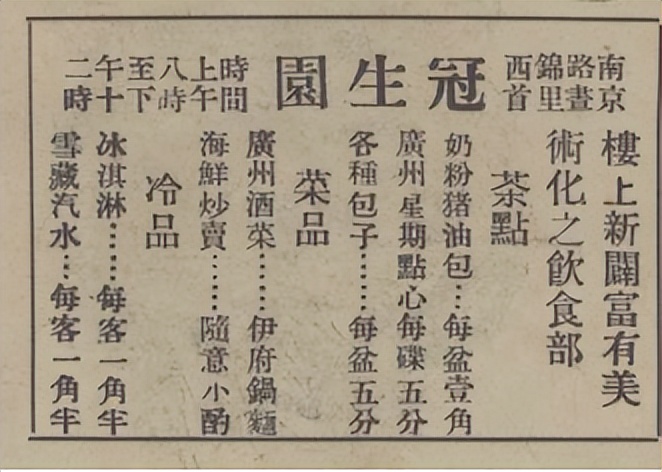 南京路畫錦里西首
冠生園
時間上午八時至下午十二時
樓上新闢富有美
術化之飲食部
茶點
奶粉猪油包…每盆壹角
廣州星期點心每碟五分
各種包子……每盆五分
菜品
廣州酒菜……伊府鍋麵
海鮮炒賣……隨意小酌
冷品
冰淇淋……每客一角半
雪藏汽水…每客一角半